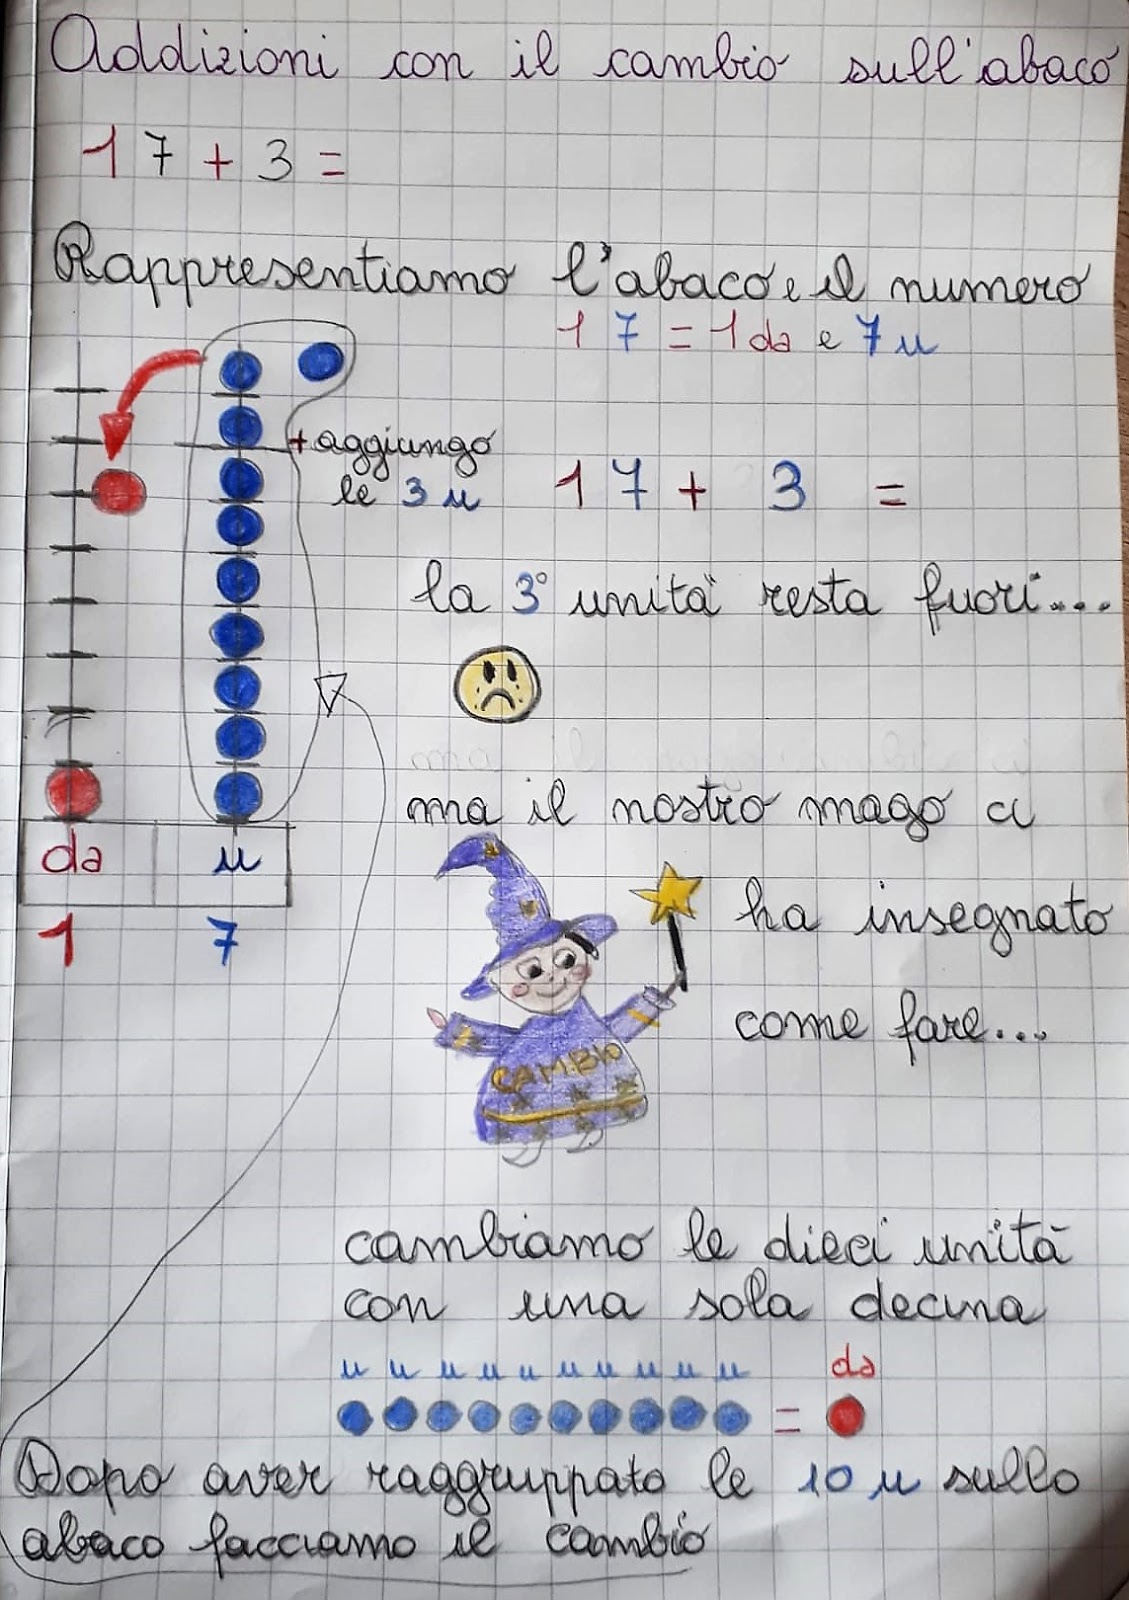 Addizioni con il cambio sull'abaco
17+3=
Rappresentiamo l'abaco e il numero
17=1da e 7u
+aggiungo
le 3u
17+3=
la 3° unità resta fuori...
ma il nostro mago ci
ha insegnato
come fare...
da u
1 7
CAMBIO
cambiamo le dieci unità
con una sola decina
u u u u u u u u u da
=
Dopo aver raggruppato le 10 u sullo
abaco facciamo il cambio